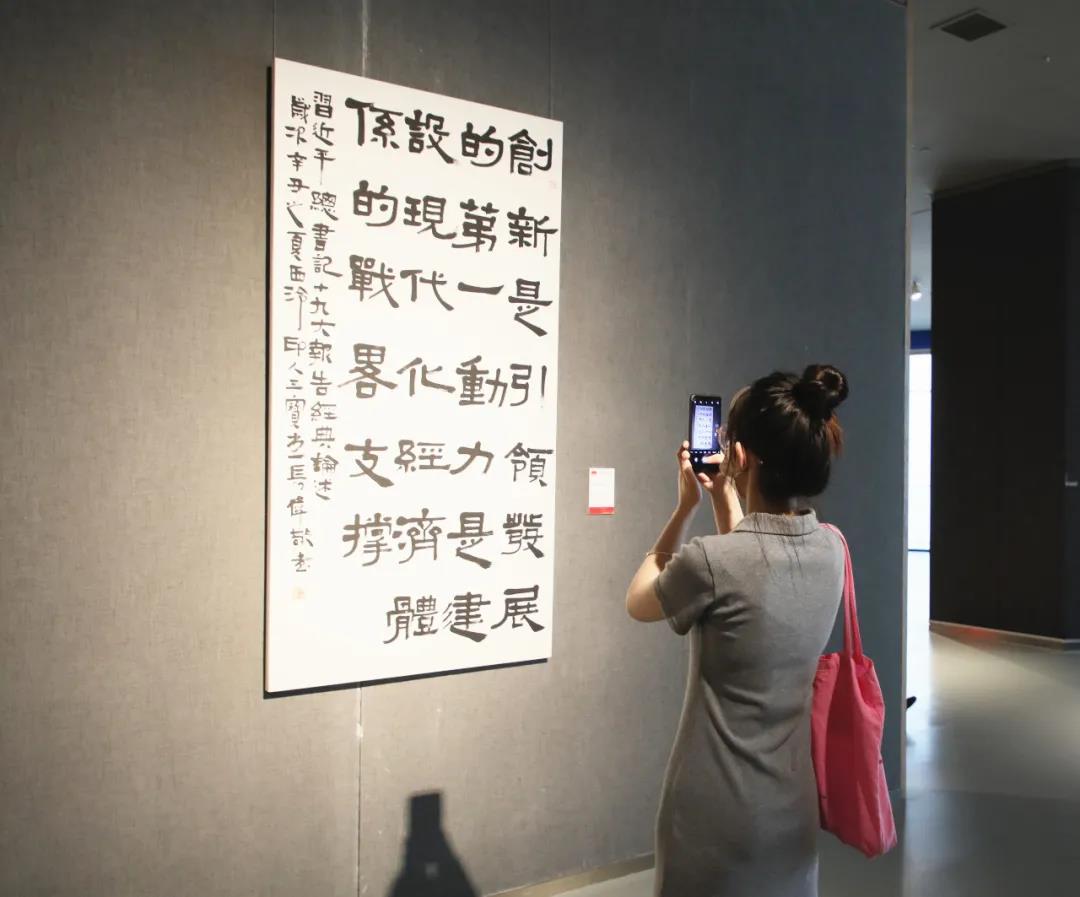 創新是引領發展
的第一動力是建
設現代化經濟體
係的戰畧支撐
習近平總書記十九大報告經典論述
歲次辛丑之夏西泠印人三寶偉敬書